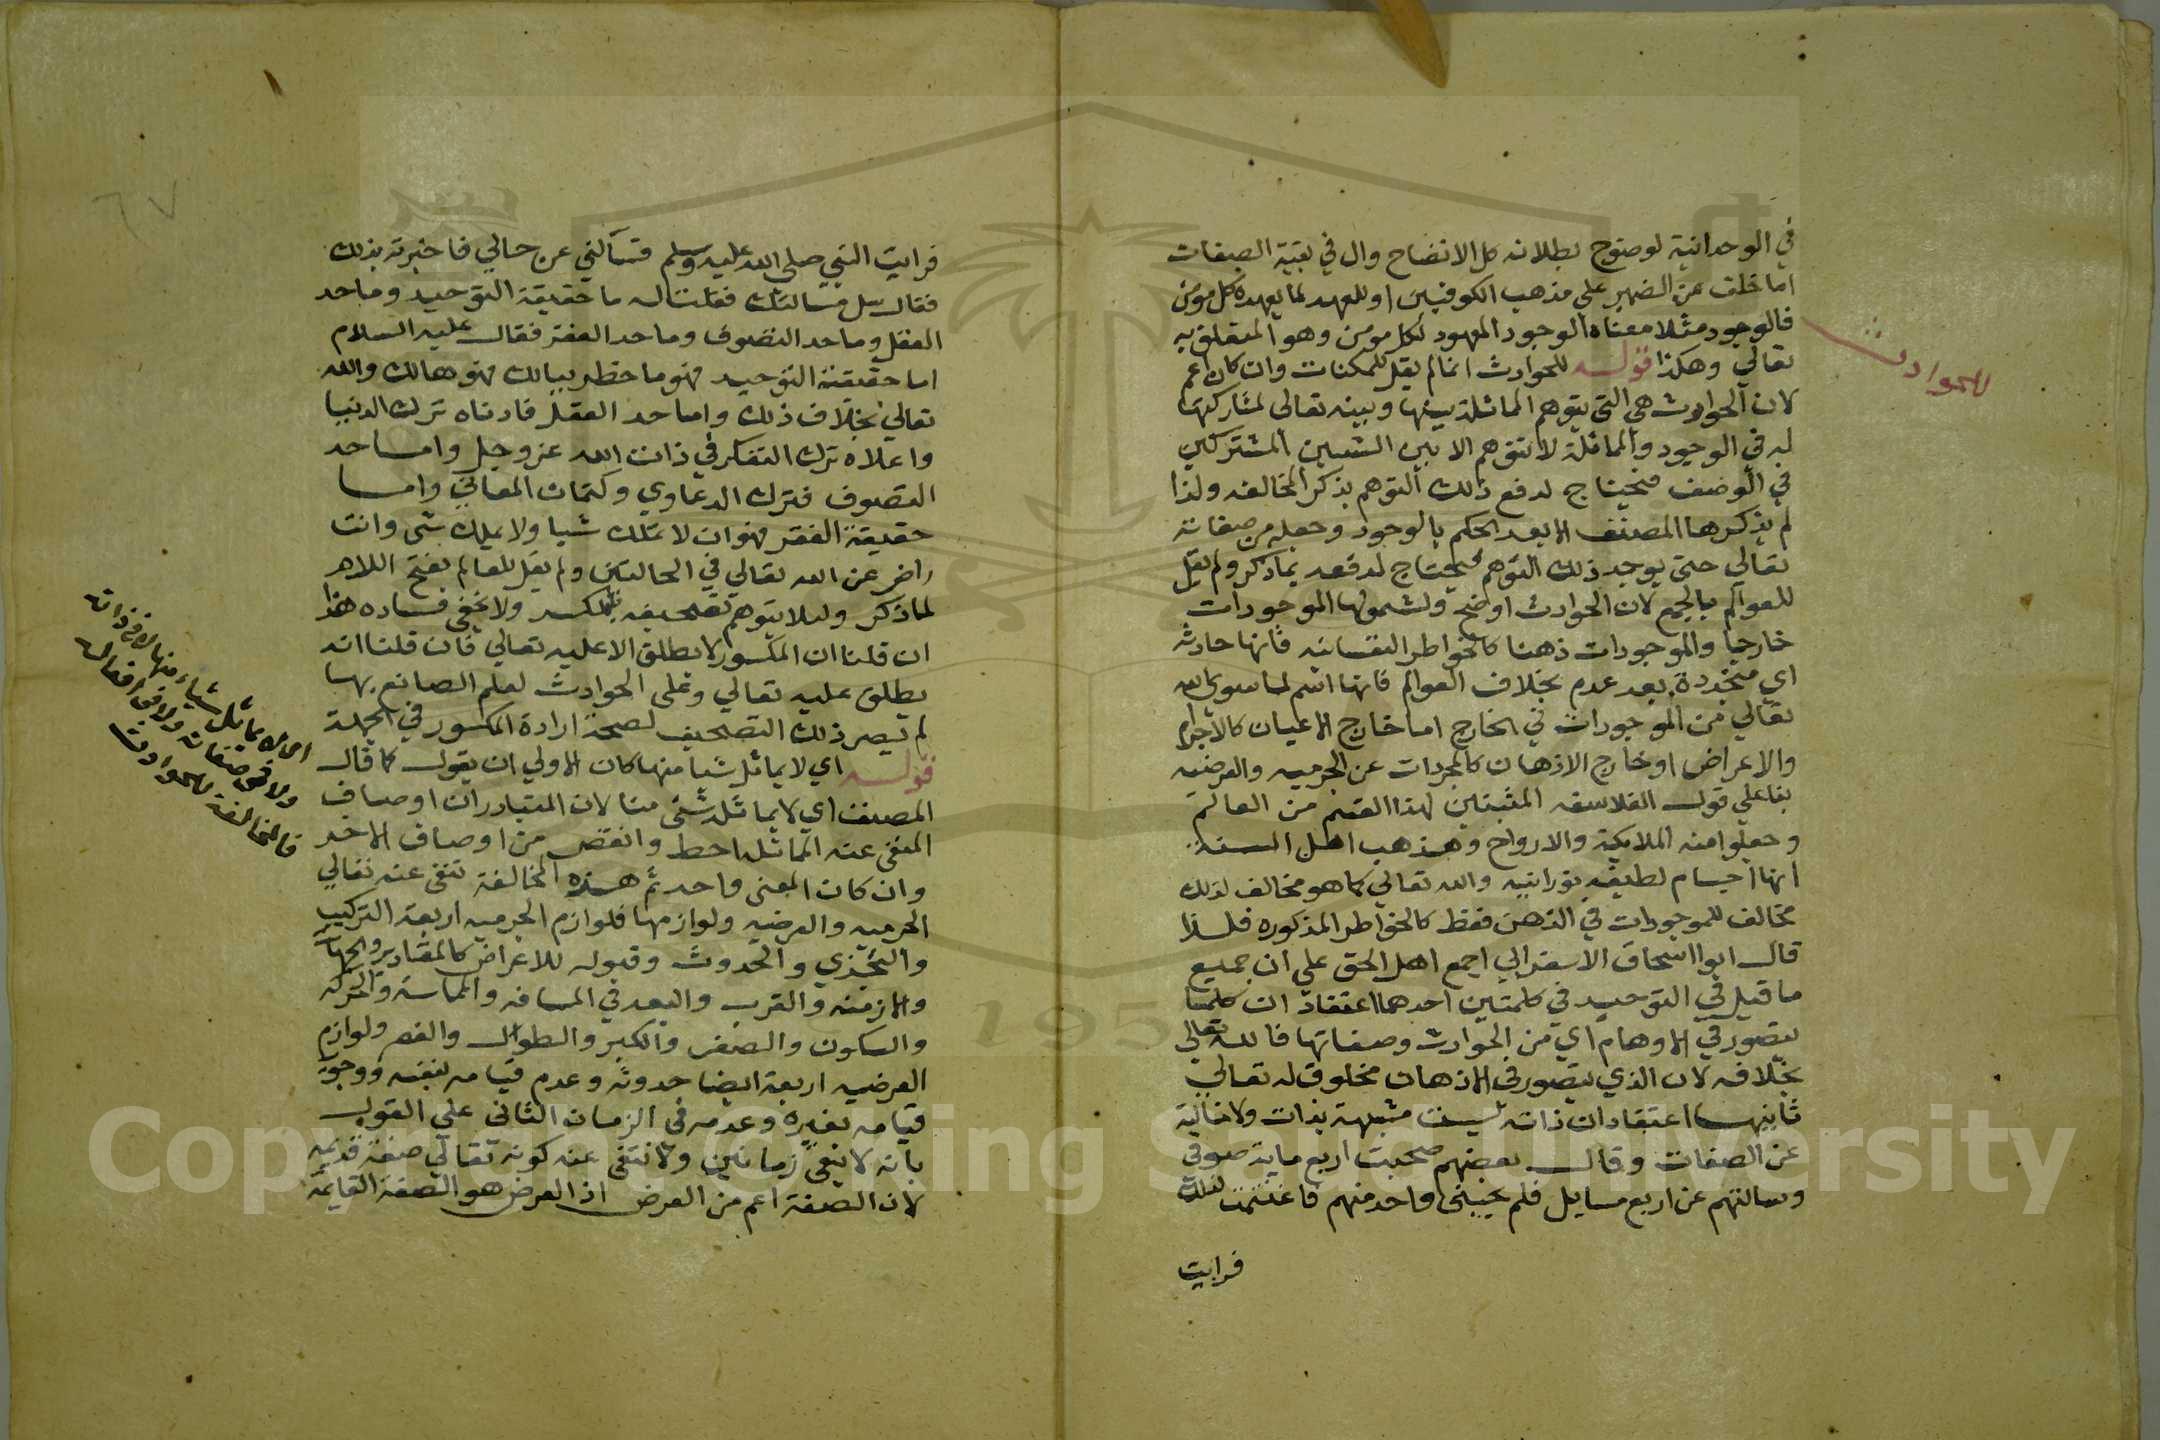 في الوحدانية لوضوح بطلانه كل الاتضاح وال في بقية الصفات
اما خلف عن الضمير علي مذهب الكوفيين او للعهد لما يعهده كل مومن
فالوجود مثلا معناه الوجود المعهود لكل مومن وهو المتعلق به
تعالي وهكذا قوله للحوادث انما لم يقل للممكنات وان كان اعم
للحوادث
لان الحوادث هي التي يتوهم المماثلة بينها وبينه تعالي لمشاركتها
له في الوجود والمماثلة لا تتوهم الا بين الشيين المشتركين
في الوصف فيحتاج لدفع ذلك التوهم بذكر المخالفه ولذا
لم يذكرها المصنف الا بعد الحكم بالوجود وجعله من صفاته
تعالي حتي يوجد ذلك التوهم فيحتاج لدفعه بما ذكر ولم يقل
للعوالم بالجمع لان الحوادث اوضح ولشمولها الموجودات
خارجيا والموجودات ذهنا كالخواطر النفسانيه فانها حادثه
اي متجددة بعد عدم بخلاف العوالم فانها اسم لما سوي الله
تعالي من الموجودات في الخارج اما خارج الاعيان كالاجرام
والاعراض او خارج الاذهان كالمجردات عن الجرميه والعرضيه
بنا علي قول الفلاسفه المثبتين لهذا القسم من العالم
وجعلوا منه الملايكة والارواح ومذهب اهل السنة
انها اجسام لطيفه نورانيه والله تعالي كما هو مخالف لذلك
مخالف للموجودات في الذهن فقط كالخواطر المذكوره فلذا
قال ابوا اسحاق الاسفرايي اجمع اهل الحق علي ان جميع
ما قيل في التوحيد في كلمتين احدهما اعتقاد ان كلما
يتصور في الاوهام اي من الحوادث وصفاتها فالله تعالي
بخلافه لان الذي يتصور في الاذهان مخلوق له تعالي
ثانيهما اعتقاد ان ذاته ليست مشبهة بذات ولا خالية
عن الصفات وقال بعضهم صحبت اربع ماية صوفي
وسالتهم عن اربع مسايل فلم يجيبني واحد منهم فاغتممت لذلك
فرايت
فرايت النبي صلي الله عليه وسلم فسألني عن حالي فاخبرته بذلك
فقال سل مسالتك فقلت له ما حقيقة التوحيد وما حد
العقل وما حد التصوف وما حد الفقر فقال عليه السلام
اما حقيقة التوحيد فهو ما خطر ببالك فهو هالك والله
تعالي بخلاف ذلك واما حد العقل فادناه ترك الدنيا
واعلاه ترك التفكر في ذات الله عز وجل واما حد
التصوف فترك الدعاوي وكتمان المعاني واما
حقيقة الفقر فهو ان لا تملك شيا ولا يملك شي وانت
راض عن الله تعالي في الحالتين ولم يقل للعالم بفتح اللام
لما ذكر وليلا يتوهم تصحيفه بالكسر ولا يخفي فساده هذا
ان قلنا ان المكسور لا يطلق الا عليه تعالي فان قلنا انه
يطلق عليه تعالي وعلي الحوادث لعلم الصانع بها
لم يضر ذلك التصحيف لصحة ارادة المكسور في الجملة
قوله اي لا يماثل شيا منها كان الاولي ان يقول كما قال
المصنف اي لا يماثله شي منا لان المتبادر ان اوصاف
المنفي عنه المماثله احط وانقص من اوصاف الاخر
وان كان المعني واحد ثم هذه المخالفة تنفي عنه تعالي
الجرميه والعرضيه ولوازمها فلوازم الجرميه اربعة التركيب
والتجزي والحدوث وقبوله للاعراض كالمقادير والجهات
والازمنه والقرب والبعد في المسافه والمماسة والحركه
والسكون والصغر والكبر والطوال والقصر ولوازم
العرضيه اربعة ايضا حدوثه وعدم قيامه بنفسه ووجوب
قيامه بغيره وعدمه في الزمان الثاني علي القول
بانه لا يبقي زمانين ولا تنتفي عنه كونه تعالي صفة قديمه
لان الصفة اعم من العرض اذ العرض هو الصفة القايمة
اي لا يماثل شياء منها لا في ذاته
ولا في صفاته ولا في افعاله
فالمخالفة للحوادث
٦٧
195
Copyright © King Saud University